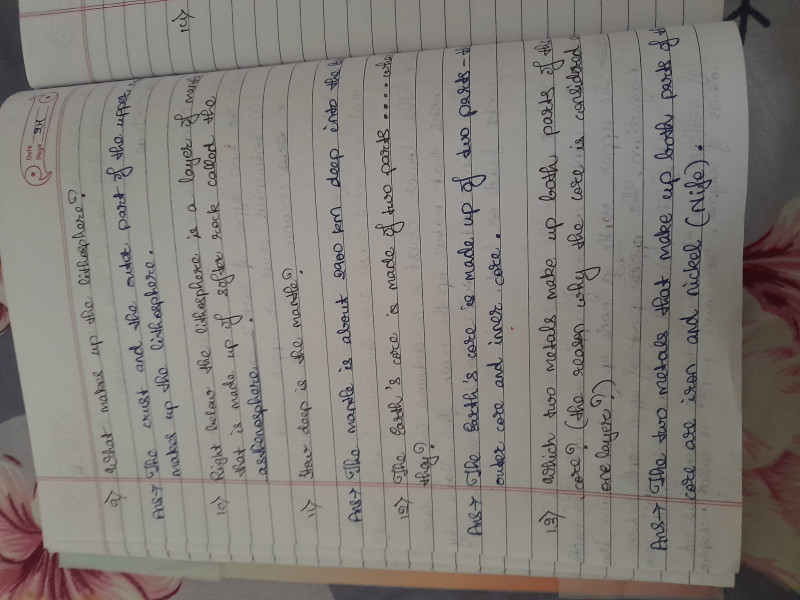 Date
Page 24
9) What makes up the lithosphere?
Ans→ The crust and the outer part of the upper
makes up the lithosphere.
10) Right below the lithosphere is a layer of
that is made up of softer rock called the
asthenosphere.
11) How deep is the mantle?
Ans→ The mantle is about 2900 km deep into the
12) The Earth's core is made of two parts....
they?
Ans→ The Earth's core is made up of two parts -
outer core and inner core.
13) Which two metals make up both parts of
core? (the reason why the core is considered
one layer?)
Ans→ The two metals that make up both parts of
core are iron and nickel (Nife).
14)